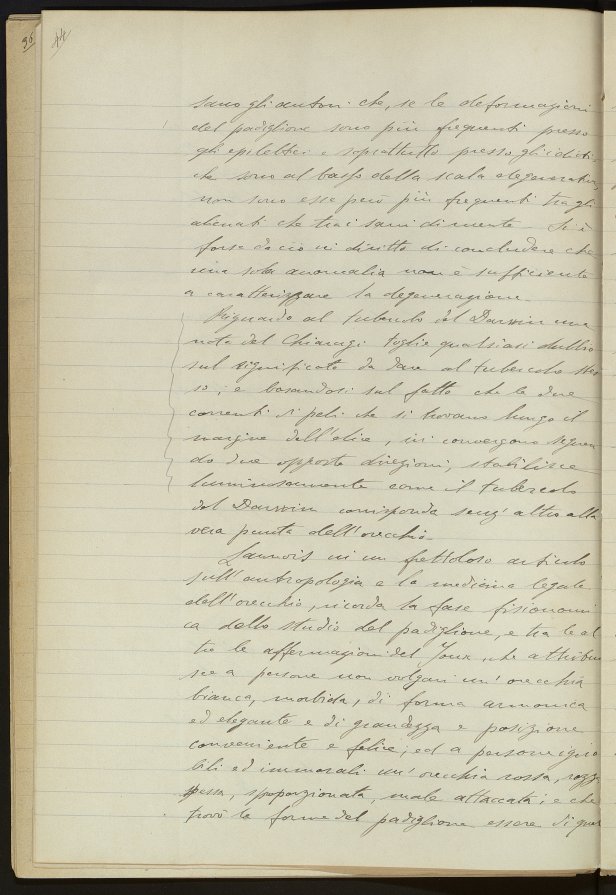 36
44
sano gli autori che, se le deformazioni
del padiglione sono più frequenti presso
gli epilettici e soprattutto presso gli idioti,
che sono al basso della scala degenerativa,
non sono esse però più frequenti tra gli
alienati che tra i sani di mente. Si è
forse da ciò in diritto di concludere che
una sola anomalia non è sufficiente
a caratterizzare la degenerazione.
Riguardo al tubercolo del Darwin una
nota del Chiarugi toglie qualsiasi dubbio
sul significato da dare al tubercolo stes
so; e basandosi sul fatto che le due
correnti di peli che si trovano lungo il
margine dell'elice, ivi convergono seguen
do due opposte direzioni, stabilisce
luminosamente come il tubercolo
del Darwin corrisponda senz'altro alla
vera punta dell'orecchio.
Lannois in un frettoloso articolo
sull'antropologia e la medicina legale
dell'orecchio, ricorda la fase fisionomi
ca dello studio del padiglione, e tra le al
tre le affermazioni del Joux, che attribui
sce a persone non volgari un'orecchia
bianca, morbida, di forma armonica
ed elegante e di grandezza e posizione
conveniente e felice; ed a persone igno
bili ed immorali un'orecchia rossa, rozza
spessa, sproporzionata, male attaccata; e che
trovò le forme del padiglione essere di